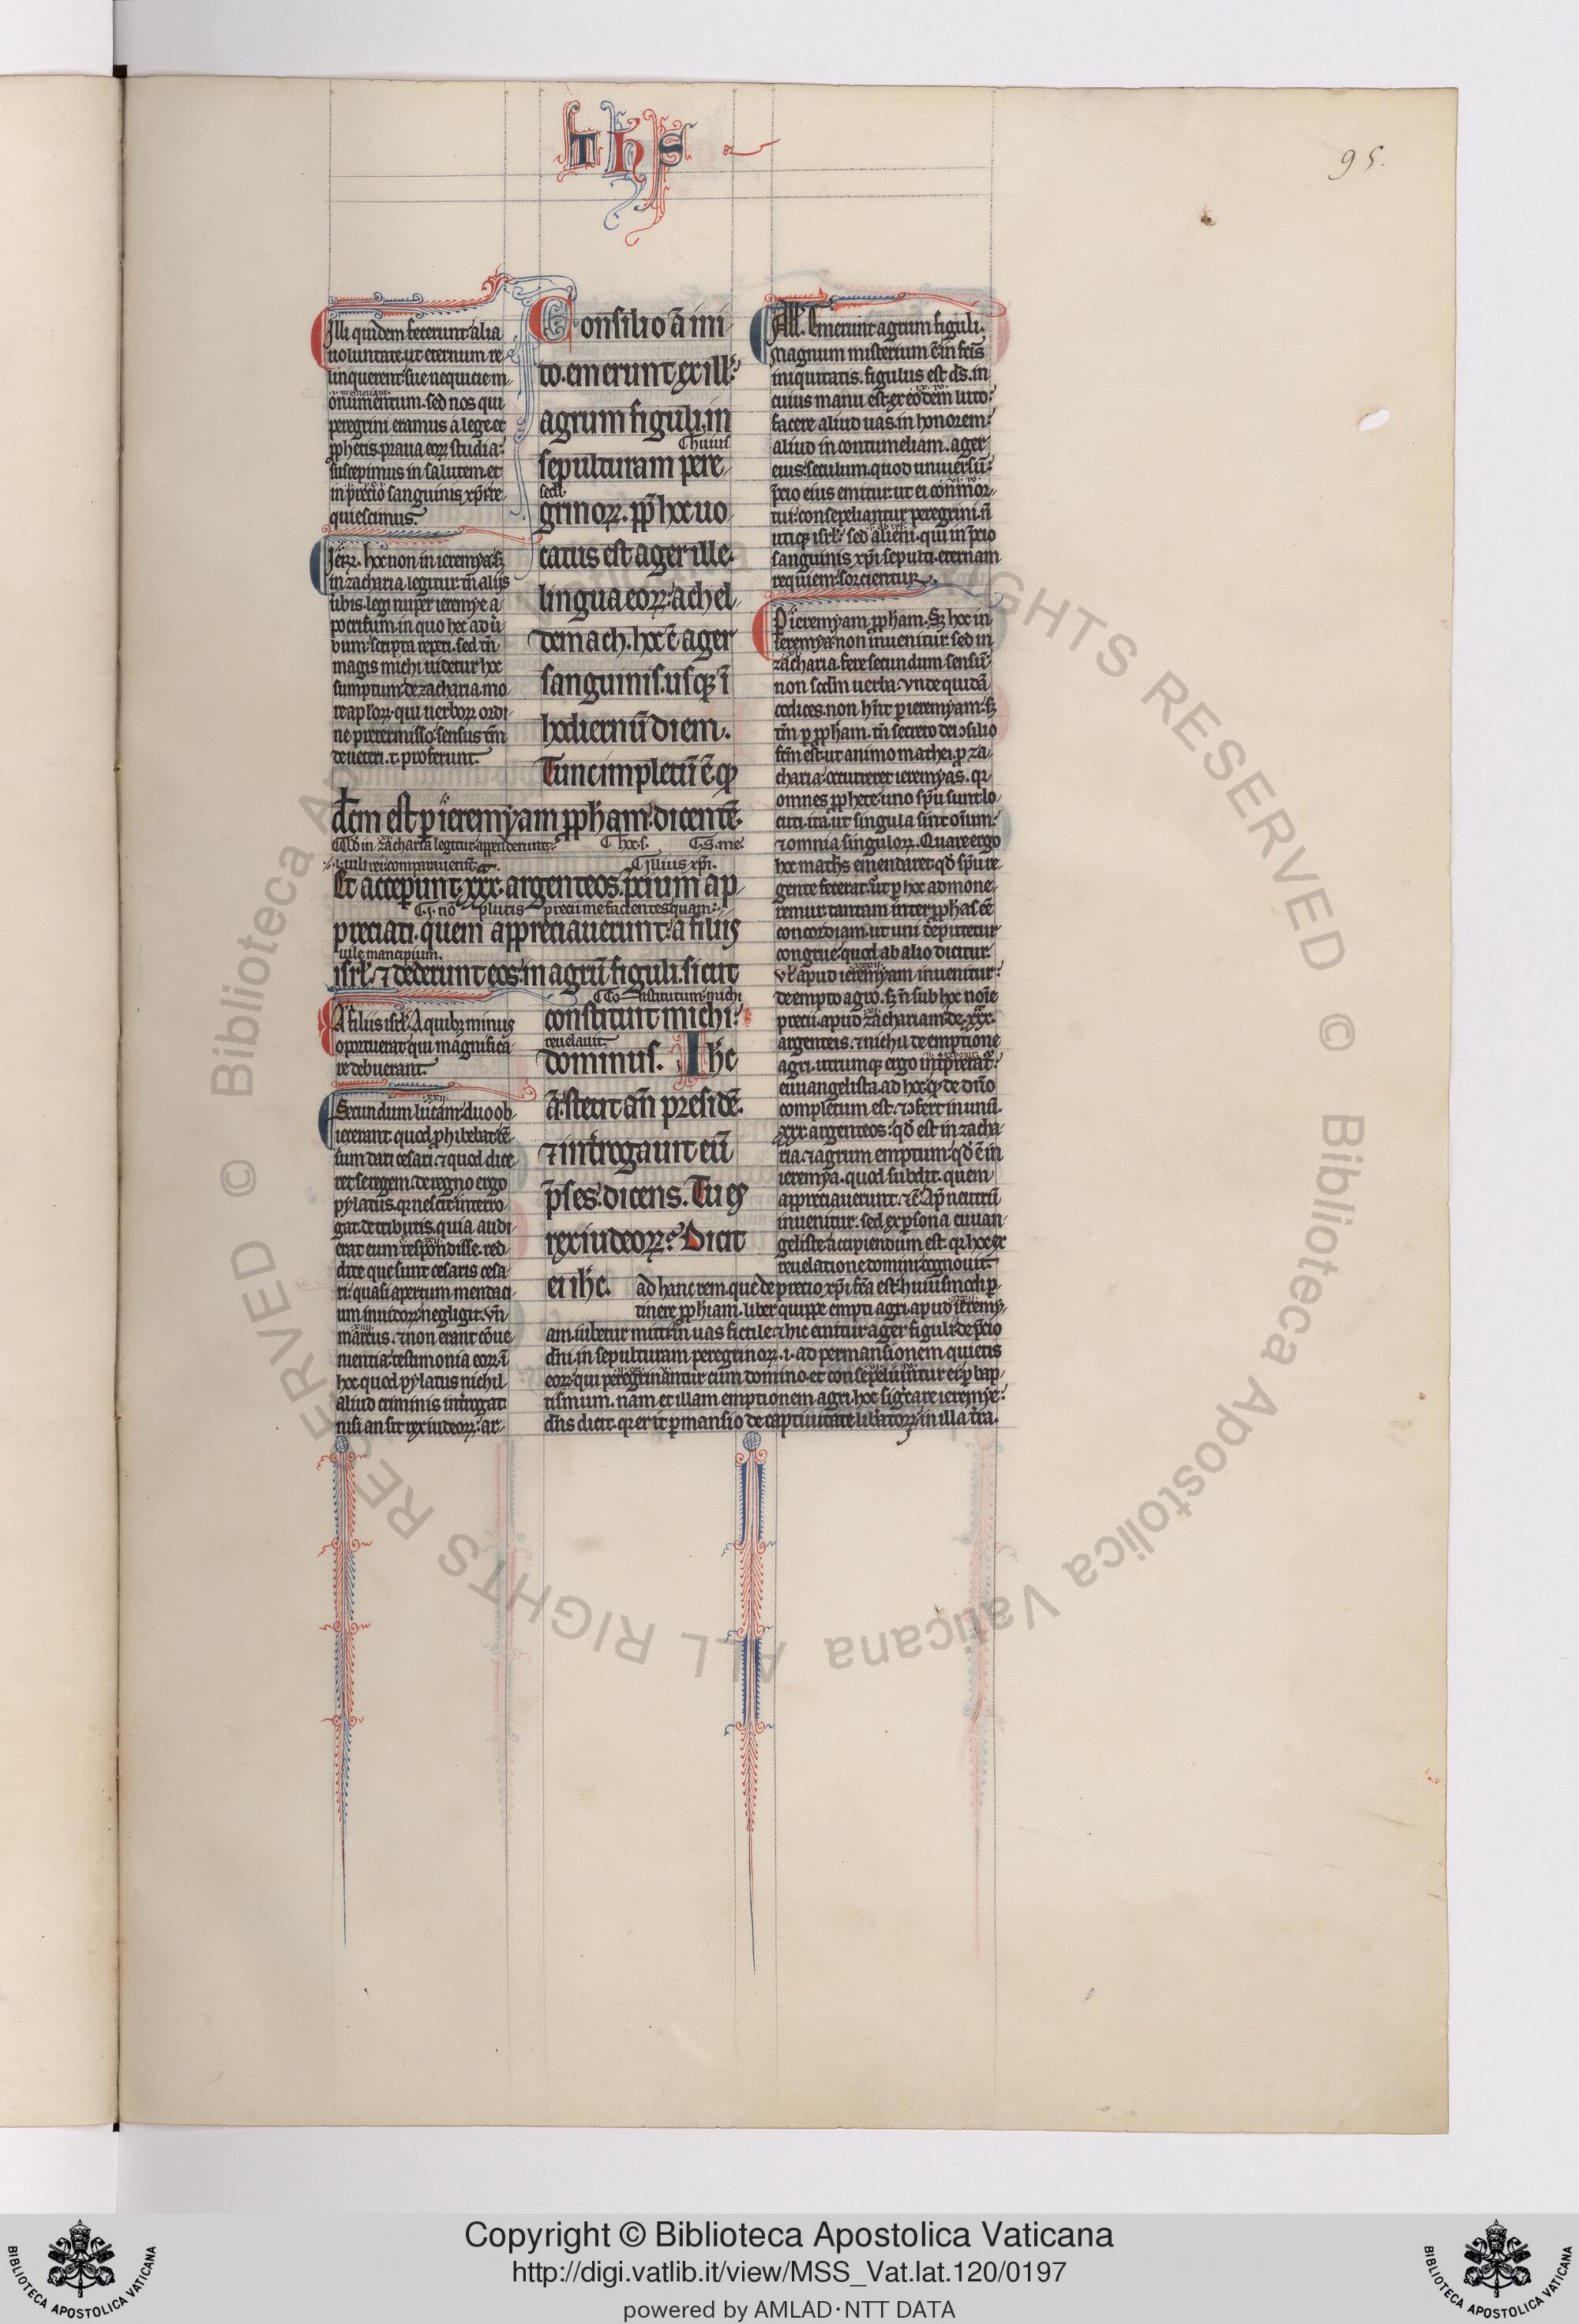 Ihs
95.
Illi quidem fecerunt alia
uoluntate ut eternum re
linquerent sue nequicie m
onumentum. sed nos qui
peregrini eramus a lege et
ꝓphetis. praua eoꝝ studia
suscepimus in salutem. et
in precio sanguinis xp̄i re
quiescimus.
Ierꝝ. hoc non in ieremya sꝫ
in zacharia legitur. tn̄ aliis
ubis. legi nuper ieremye a
pocrifum. in quo hec ad ū
bum scripta reperi. sed tn̄
magis michi uidetur hoc
sumptum de zacharia. mo
re ap̄loꝝ. qui uerboꝝ ordi
ne pretermisso sensus tm̄
de ueteri. t. proferunt.
Consilio ā ini
to. emerunt ex ill̓
agrum figuli. in
sepulturam pere
grinoꝝ. ꝓp̄ hoc uo
catus est ager ille
lingua eoꝝ achel
demach. hoc ē ager
sanguinis. usqꝫ ī
hodiernū diem.
Tunc impletū ē. qͥ
dc̄m est ꝑ ieremyam ꝓph̄am dicentē.
Et acceperunt. xxx. argenteos p̄cium ap
preciati. quem appreciauerunt a filiis
isrl̓. ⁊ dederunt eos in agrū figuli. sicut
constituit michi
dominus. Ih̄c
ā. stetit an̄ presidē.
⁊ int̓rogauit eū
p̄ses. dicens. Tu es
rex iudeoꝝ? Dicit
ei ih̄c.
A filiis isrl̓. A quibꝫ minus
oportuerat qui magnifica
re debuerant.
Secundum lucam duo ob
iecerant. quod ꝓhibebat cē
sum dari cesari. ⁊ quod dice
ret se regem. de regno ergo
pylatus. qr nescit interro
gat. de tributis. quia audi
erat eum respondisse. red
dite que sunt cesaris cesa
ri. quasi apertum mendaci
um inuidoꝝ negligit. Vn̄
marcus. ⁊ non erant cōue
nientia testimonia eoꝝ. ī
hoc quod pylatus nichil
aliud criminis int̓rogat
nisi an sit rex iudeoꝝ. ar
All̓. Emerunt agrum figuli.
magnum misterium
iniquitatis. figulus est ds̄. in
cuius manu est. ex eodem luto
facere aliud uas. in honorem
aliud in contumeliam. ager
eius seculum. quod uniuersū
p̄cio eius emitur. ut ei conmor
tui consepeliantur peregrini. n̄
utiqꝫ isrl̓. sed alieni. qui in p̄cio
sanguinis xp̄i sepulti. eternam
requiem sorcientur.
P ieremyam ꝓph̄am. Sꝫ hoc in
ieremya non inuenitur. sed in
zacharia. fere secundum sensū
non scd̄m uerba. vnde quidā
codices. non hn̄t ꝑ ieremyam. sꝫ
tm̄ ꝑ ꝓph̄am. tn̄ secreto dei ɔsilio
fc̄m est. ut animo mathei. ꝓ za
charia. occurreret ieremyas. qr
omnes ꝓphete uno sp̄u sunt lo
cuti. ita ut singula sint oīum
⁊ omnia singuloꝝ. Quare ergo
hoc math̄s emendaret. qd̄ sp̄u re
gente fecerat. ut ꝑ hoc admone
remur tantam inter ꝓph̄as eē
concordiam. ut uni deputetur
congrue quod ab alio dicitur.
Vl̓ apud ieremyam inuenitur
de empto agro. sꝫ n̄ sub hoc noīe
precii. apud zachariam de. xxx.
argenteis. ⁊ nichil de emptione
agri. utrumqꝫ ergo int̓pretat᷑
euuangelista. ad hoc qd̄ de dn̄o
completum est. ⁊ ɔfert in unū.
xxx. argenteos qd̄ est in zacha
ria. ⁊ agrum emptum qd̄ ē in
ieremya. quod subdit. quem
appreciauerunt. ⁊c̄. Ap̄ neutrū
inuenitur. sed ex ꝑsona euuan
geliste accipiendum est. qr hoc ex
reuelatione domini cognouit
ad hanc rem. que de precio xp̄i fc̄a est. huiusmodi ꝑ
tinere ꝓph̄iam. liber quippe empti agri apud ieremy
am. iubetur mitti in uas fictile. ⁊ hic emitur ager figuli de p̄cio
dn̄i in sepulturam peregrinoꝝ. i. ad permansionem quietis
eoꝝ qui peregrinantur cum domino. et consepeliuntur ei ꝑ bap
tismum. nam et illam emptionem agri. hoc sig̅care ieremye
dn̄s dicit. qr erit ꝑmansio de captiuitate lib̓atoꝝ in illa t̓ra.
RIGHTS RESERVED © Biblioteca Apostolica Vaticana ALL RIGHTS RESERVED © Biblioteca Ap
Copyright © Biblioteca Apostolica Vaticana
http://digi.vatlib.it/view/MSS_Vat.lat.120/0197
powered by AMLAD·NTT DATA
BIBLIOTECA APOSTOLICA VATICANA
BIBLIOTECA APOSTOLICA VATICANA